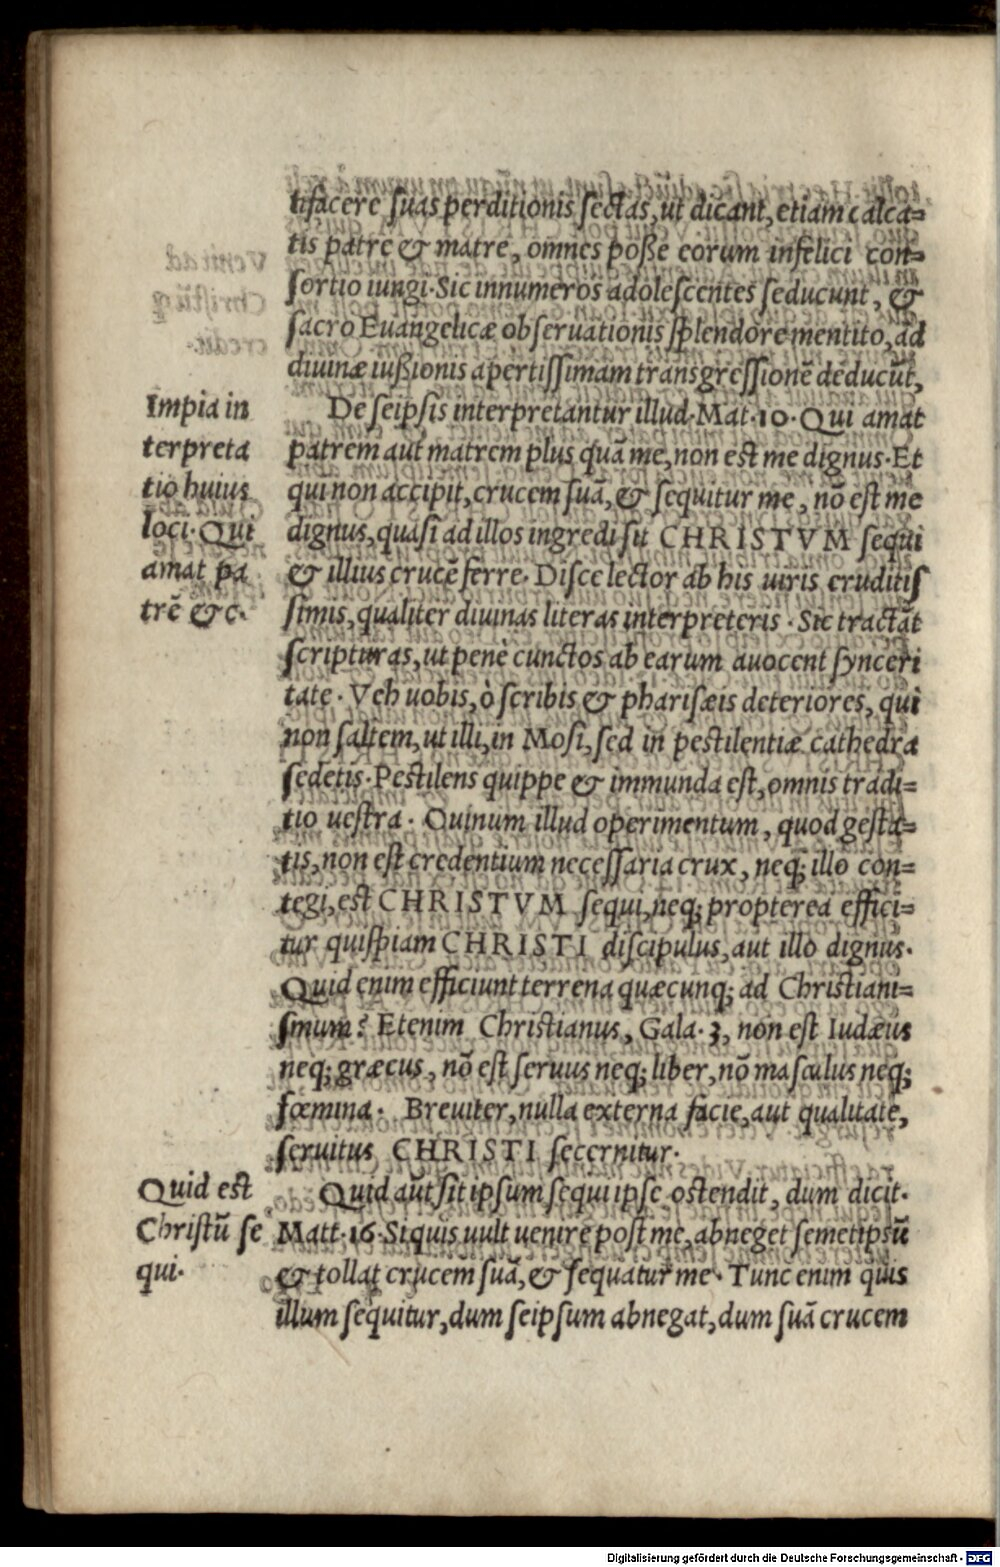 tifacere suas perditionis sectas, ut dicant, etiam calca=
tis patre & matre, omnes posse eorum infelici con=
sortio iungi. Sic innumeros adolescentes seducunt, &
sacro Euangelicæ obseruationis splendore mentito, ad
diuinæ iussionis apertissimam transgressionē deducūt,
Impia in
terpreta
tio huius
loci. Qui
amat pa
trē &c.
De seipsis interpretantur illud. Mat. 10. Qui amat
patrem aut matrem plus quā me, non est me dignus. Et
qui non accipit, crucem suā, & sequitur me, nō est me
dignus, quasi ad illos ingredi sit CHRISTVM sequi
& illius crucē ferre. Disce lector ab his uiris eruditis
simis, qualiter diuinas literas interpreteris. Sic tractāt
scripturas, ut penè cunctos ab earum auocent synceri
tate. Veh uobis, ò scribis & pharisæis deteriores, qui
non saltem, ut illi, in Mosi, sed in pestilentiæ cathedra
sedetis. Pestilens quippe & immunda est, omnis tradi=
tio uestra. Ouinum illud operimentum, quod gesta=
tis, non est credentium necessaria crux, neq; illo con=
tegi, est CHRISTVM sequi, neq; propterea effici=
tur quispiam CHRISTI discipulus, aut illo dignus.
Quid enim efficiunt terrena quæcunq; ad Christiani=
smum? Etenim Christianus, Gala. 3, non est Iudæus
neq; græcus, nō est seruus neq; liber, nō masculus neq;
fœmina. Breuiter, nulla externa facie, aut qualitate,
seruitus CHRISTI secernitur.
Quid est
Christū se
qui.
Quid aūt sit ipsum sequi ipse ostendit, dum dicit.
Matt. 16. Si quis uult uenire post me, abneget semetipsū
& tollat crucem suā, & sequatur me. Tunc enim quis
illum sequitur, dum seipsum abnegat, dum suā crucem
Digitalisierung gefördert durch die Deutsche Forschungsgemeinschaft - DFG